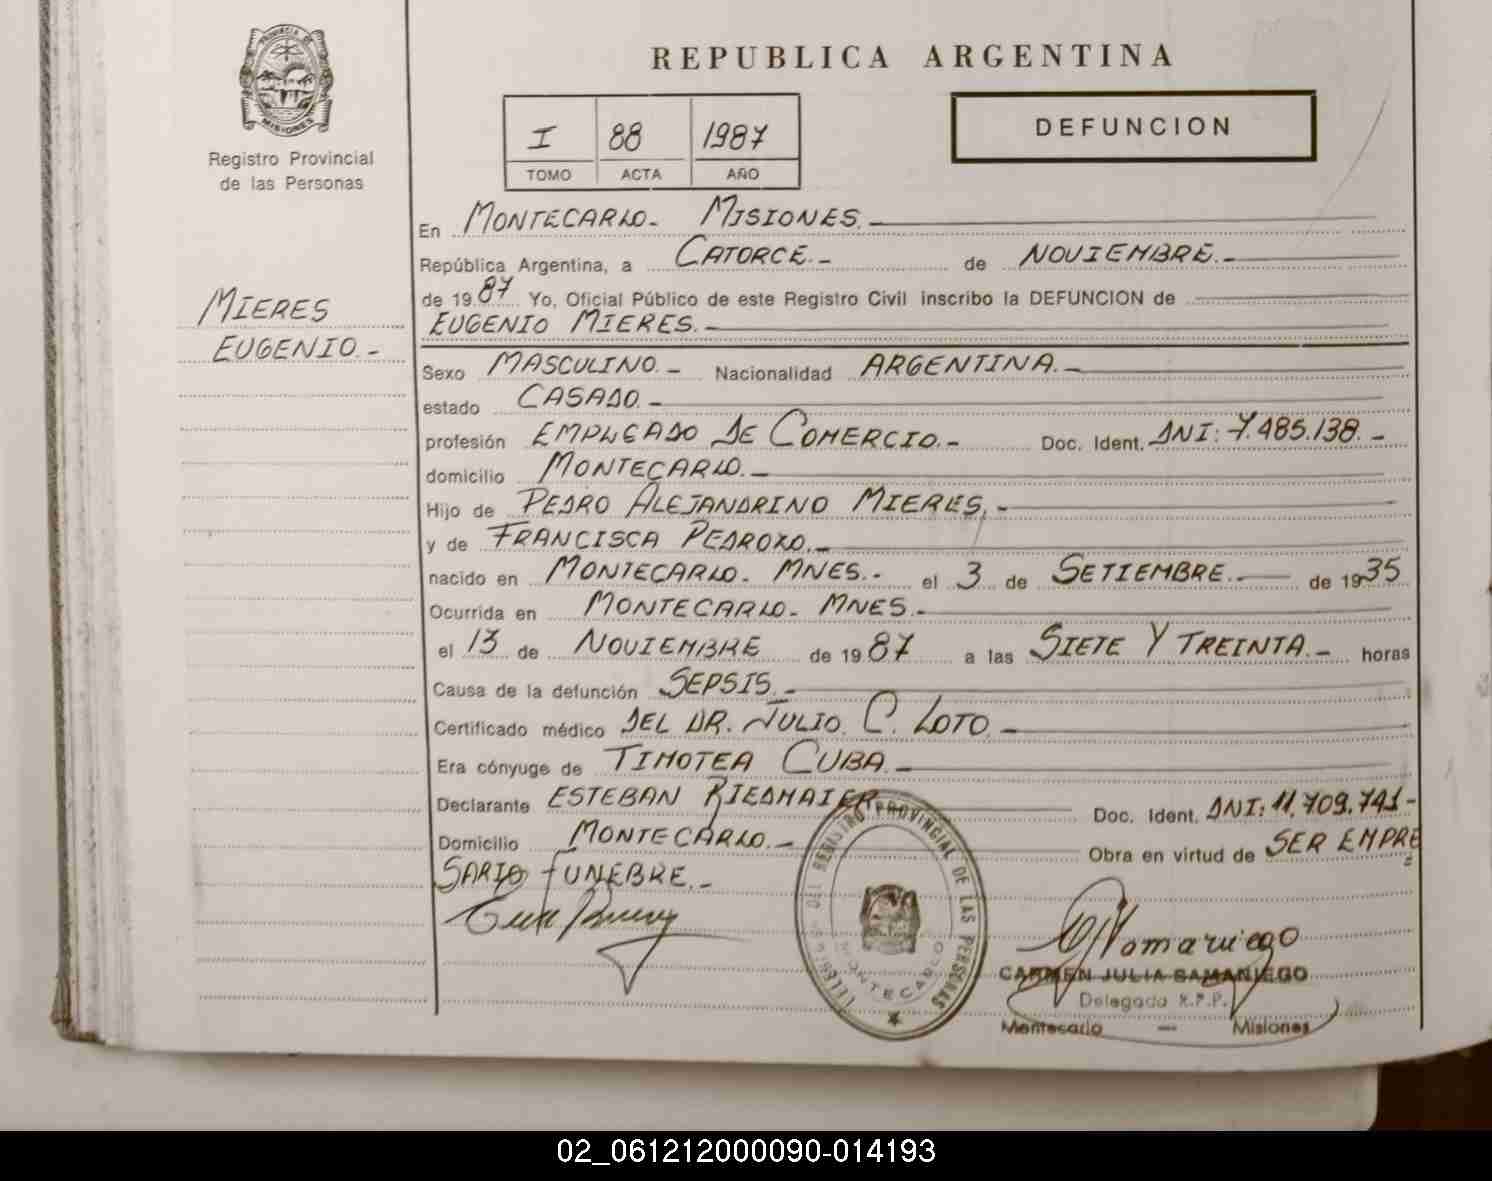 PROVINCIA DE
MISIONES
Registro Provincial
de las Personas
MIERES
EUGENIO.-
REPUBLICA ARGENTINA
I 88 1987
TOMO ACTA AÑO
DEFUNCION
En MONTECARLO- MISIONES.-
República Argentina, a CATORCE.- de NOVIEMBRE.-
de 1987 Yo, Oficial Público de este Registro Civil inscribo la DEFUNCION de
EUGENIO MIERES.-
Sexo MASCULINO.- Nacionalidad ARGENTINA.-
estado CASADO.-
profesión EMPLEADO DE COMERCIO.- Doc. Ident. DNI: 7.485.138.-
domicilio MONTECARLO.-
Hijo de PEDRO ALEJANDRINO MIERES.-
y de FRANCISCA PEDROZO.-
nacido en MONTECARLO- MNES.- el 3 de SETIEMBRE.- de 1935
Ocurrida en MONTECARLO- MNES.-
el 13 de NOVIEMBRE de 1987 a las SIETE Y TREINTA.- horas
Causa de la defunción SEPSIS.-
Certificado médico DEL DR. JULIO C. LOTO.-
Era cónyuge de TIMOTEA CUBA.-
Declarante ESTEBAN RIEDMAIER Doc. Ident. DNI: 11.709.741-
Domicilio MONTECARLO.- Obra en virtud de SER EMPRE
SARIO FUNEBRE.-
DEL REGISTRO PROVINCIAL DE LAS PERSONAS
MONTECARLO
CARMEN JULIA SAMANIEGO
Delegada R.P.P.
Montecarlo — Misiones
02_061212000090-014193